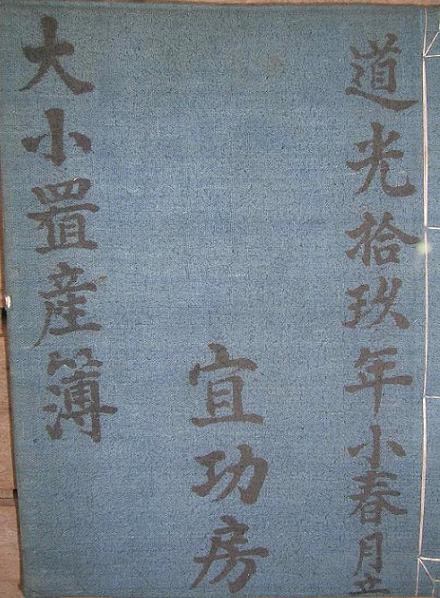 道光拾玖年小春月立
宜功房
大小置産簿